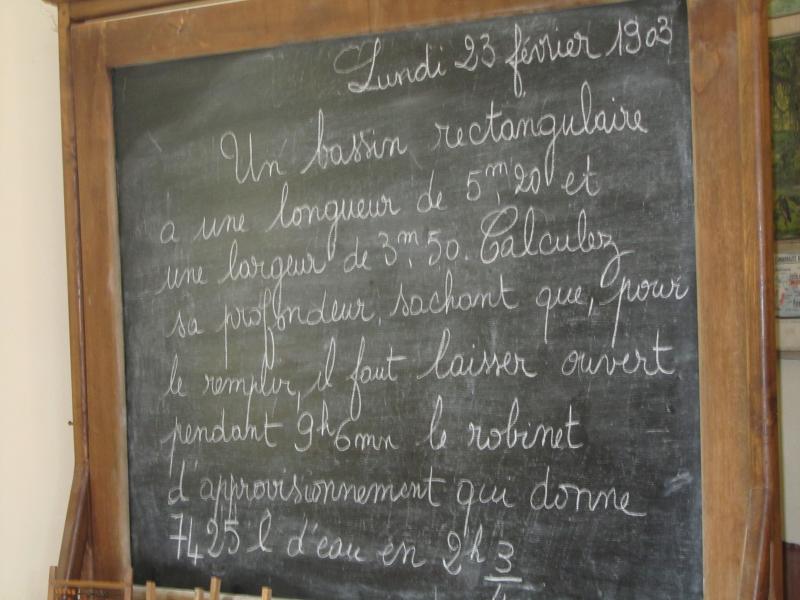 Lundi 23 février 1903
Un bassin rectangulaire
a une longueur de 5m,20 et
une largeur de 3m,50. Calculez
sa profondeur, sachant que, pour
le remplir, il faut laisser ouvert
pendant 9h6mn le robinet
d'approvisionnement qui donne
7425 l d'eau en 2h 3/4